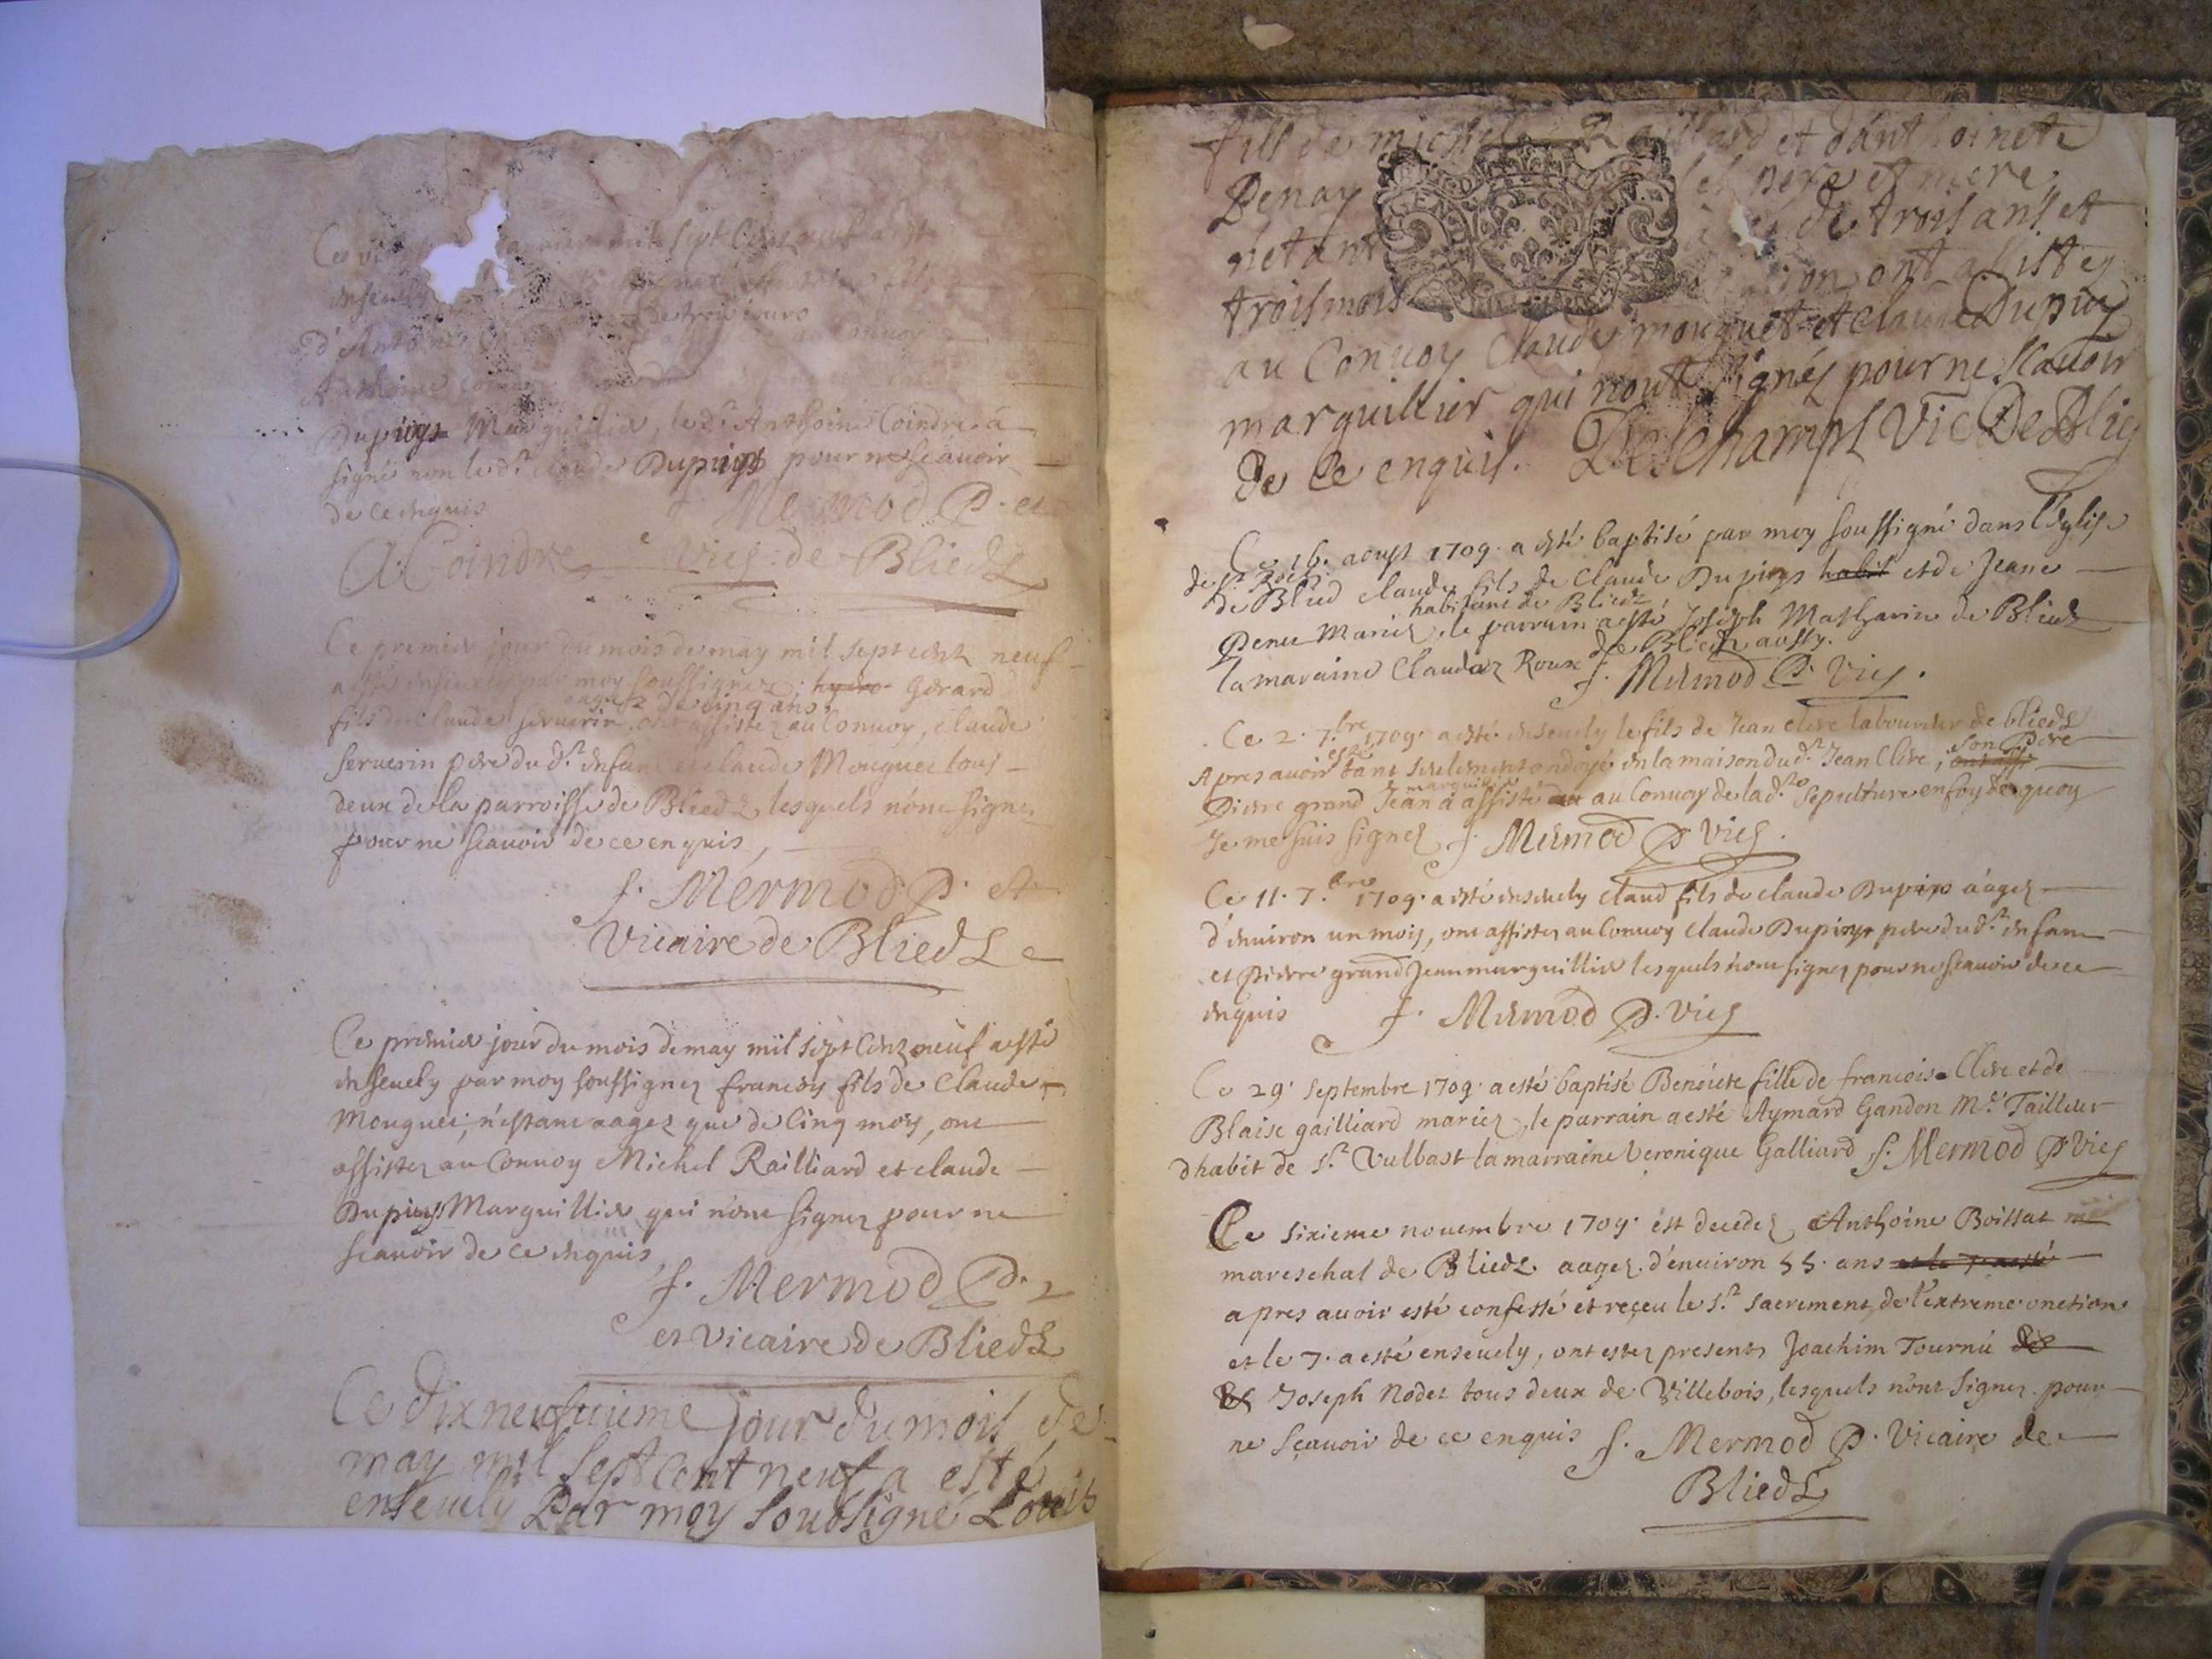 mil sept Cents
ensevely
de trois jours
au Convoy
Anthoine
Dupuys Marguillier, led.t Anthoine Coindre a
signé non led.t claude Dupuys pour ne scavoir
de ce enquis Mermod P. et
A Coindre Vics de Blieds
Ce premier jour du mois de may mil sept cents neuf
a esté ensevely par moy soussignez, Gerard
aagez de cinq ans
fils de Claude Serverin ont assistez au Convoy, claude
Serverin pere du d.t enfant et claude Mouguet tous
deux de la parroisse de Blieds lesquels n'ont signez
pour ne scavoir de ce enquis,
f. Mermod P. et
Vicaire de Blieds
Ce premier jour du mois de may mil sept Cents neuf a esté
ensevely par moy soussignez francois fils de Claude
Mouguet, n'estant aagez que de Cinq mois, ont
assistez au Convoy Michel Railliard et claude
Dupuys Marguillier qui n'ont signez pour ne
scavoir de ce enquis,
f. Mermod P.
et Vicaire de Blieds
Ce dix neufvieme jour du mois de
may mil sept cent neuf a esté
ensevely Par moy soubsigné Louis
fils de michel Railliard et danthoinete
Denay ses pere et mere
n'etant de trois ans et
trois mois ont assistez
au Convoy Claude mouguet et claude Dupuy
marguillier qui n'ont signés pour ne scavoir
de Ce enquis. Deschamps Vic De Blies
Ce 16. aoust 1709. a esté baptisé par moy soussigné dans l'Eglise
de St Roch
de Blied claude fils de Claude Dupuys habit et de Jeane
habitant de Blieds
Penet Mariez, le parrain a esté Joseph Matharin de Blieds
de Blieds aussy.
la maraine Claudaz Roux f. Mermod P. Vics.
Ce 2. 7.bre 1709. a esté ensevely le fils de Jean Clere laboureur de blieds
Apres avoir esté tant seulement ondoyé en la maison du d.t Jean Clere, son Pere
marguillier
Pierre grand Jean a assisté au Convoy de lad.te sepulture en foy de quoy
Je me suis signez f. Mermod P Vics.
Ce 11. 7.bre 1709. a esté ensevely claud fils de claude Dupuys aagez
d'environ un mois, ont assistez au Convoy claude Dupuys pere du d.t enfant
et Pierre grand Jean marguillier lesquels n'ont signez pour ne scavoir de ce
enquis f. Mermod P. Vics
Ce 29. septembre 1709. a esté baptisé Benoiete fille de francois Clere et de
Blaise gailliard mariez, le parrain a esté Aymard Gandon M.e Tailleur
dhabit de S.t Vulbast la marraine Veronique Galliard f. Mermod P Vics
Ce sixieme novembre 1709. est decedez Anthoine Boissat
mareschal de Blieds aagez d'environ 55. ans et le 7. a esté
apres avoir esté confessé et reçeu le S.t sacrement de l'extreme onction
et le 7. a esté ensevely, ont estez presents Joachim Tournü de
& Joseph Nodet tous deux de Villebois, lesquels n'ont signez pour
ne sçavoir de ce enquis f. Mermod P. Vicaire de
Blieds